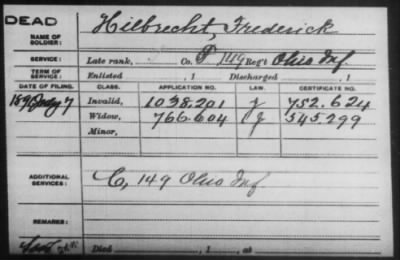 DEAD
NAME OF SOLDIER: Hilbrecht, Frederick
SERVICE: Late rank, Co. 149 Reg't Ohio Inf.
TERM OF SERVICE: Enlisted , 1 Discharged , 1
DATE OF FILING. CLASS. APPLICATION NO. LAW. CERTIFICATE NO.
1891 July 7 Invalid, 1038.201 J 752.624
Widow, 766.604 J 545299
Minor,
ADDITIONAL SERVICES: C, 149 Ohio Inf
REMARKS:
Died , 1 , at